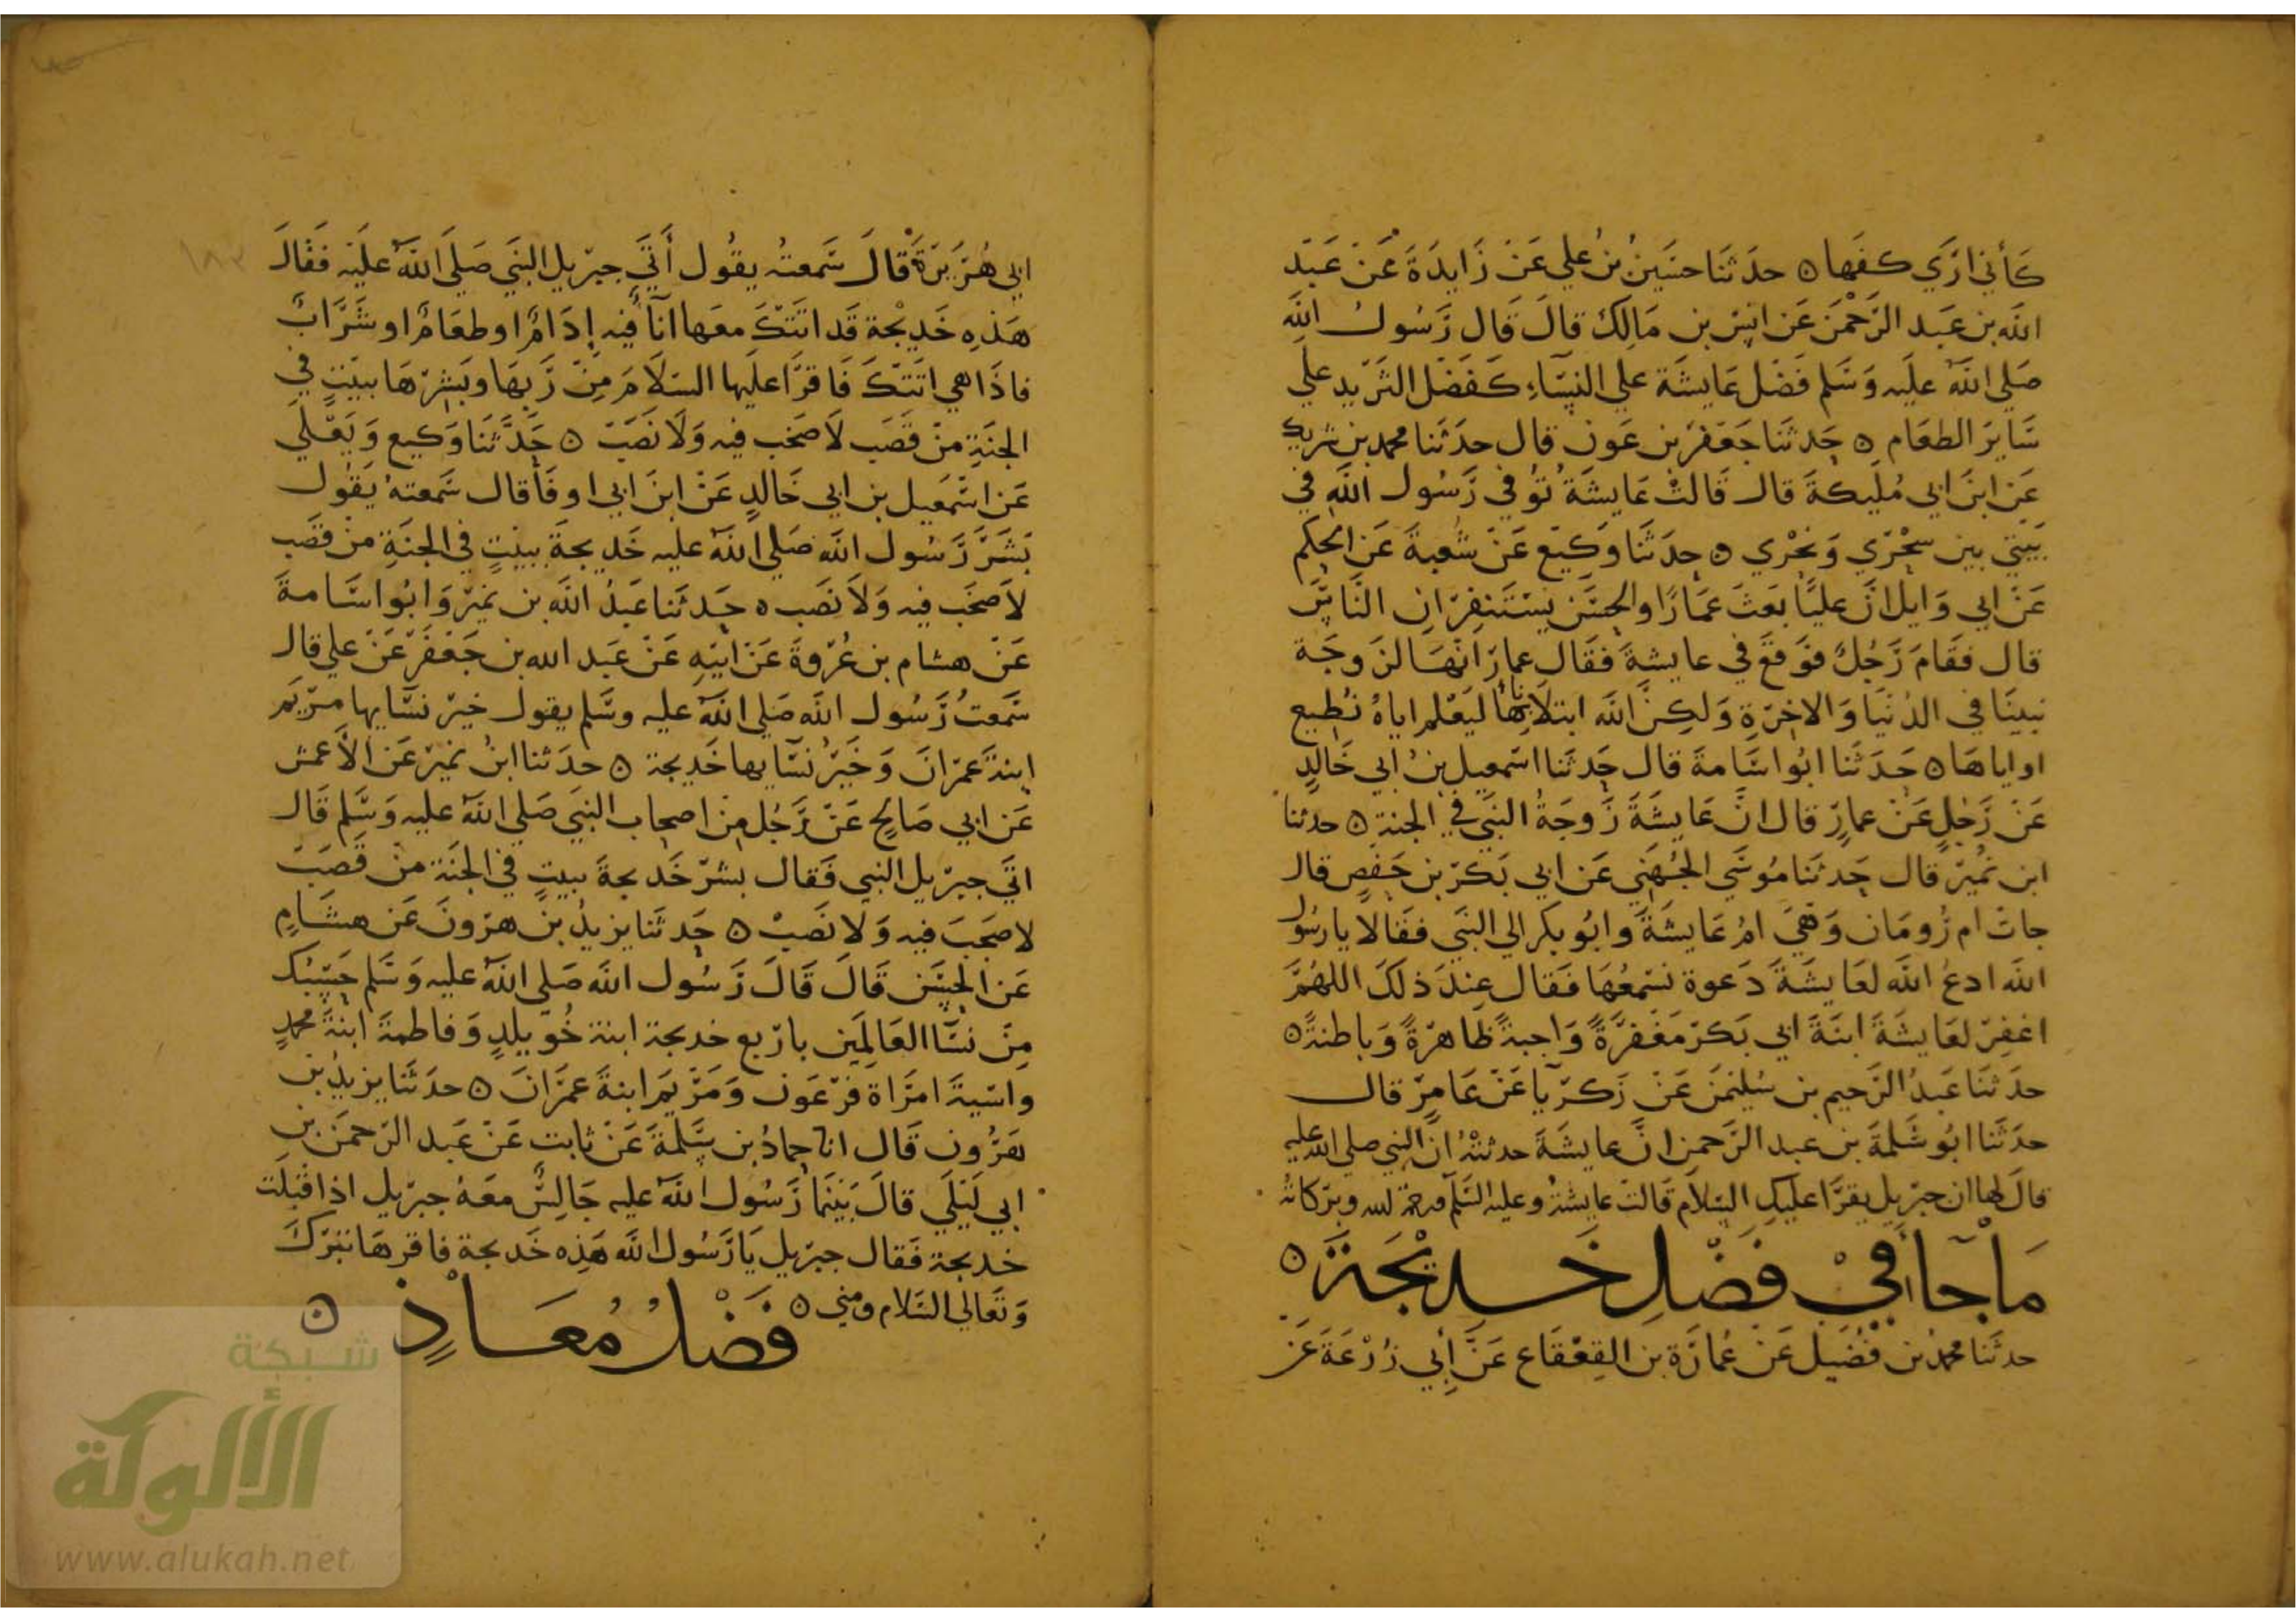 كَأني ارَي كفَها ٥ حدَثنَا حسَين بنُ علي عَنْ زَايدَةَ عَنْ عَبَد
الله بن عَبَد الرَحْمَن عَن انَس بن مَالِك قالَ قَال رَسُول الله
صَلي اللهُ علَيه وَسَلم فَضْل عَايشَة علي النِسَاءِ كَفَضْل الثَرَيد علي
سَايرَ الطعَام ٥ حَدثنَا جَعَفَرُ بن عَون قال حدَثَنا محمد بن شريك
عَن ابنَ ابي مُلَيكةَ قال قَالتْ عَايشَةُ تُوُفي رَسُول اللَه في
بَيتي بين سحْرَي وَنحْري ٥ حدَثَنَا وَكيَع عَنْ شُعبةَ عَن الحكم
عَنْ ابي وَايل انَ عليًا بَعَثَ عَمَارًا والحسَن يَسْتَنفِرَانِ النَاسَ
قال فقَامَ رَجُلٌ فوَقعَ في عايشةَ فقَال عمار انهَا لزَوجَة
نبينَا في الدُنيَا وَالاخِرَةِ وَلكِنَّ الله ابتلانَا بهَا ليَعْلم اياهُ نُطِيع
او اياهَا ٥ حَدَثَنا ابُو اسَامةَ قال حَدثنَا اسمعيل بنُ ابي خَالدٍ
عَنْ رَجلٍ عَنْ عمارٍ قال انَّ عَايشَةَ زَوجَةُ النبَي في الجنةِ ٥ حدثنا
ابن نُمَيرَ قال حَدثنَا مُوسَي الجُهَني عَن ابي بَكرَ بن حَفصٍ قال
جاتْ ام رُومَان وَهيَ امُ عَايشَةَ وابُو بكر الي النبَي فقَالا يا رسُول
الله ادعُ اللهَ لعَايشَةَ دَعوة نسْمَعُهَا فقَال عِندَ ذلَكَ اللهُمَّ
اغفِرْ لعَايشَةَ ابنَةَ ابي بَكرَ مَغفرَةً وَاجبةً ظَاهرَةً وَباطنةً ٥
حدَثنَا عَبدُ الرَحيم بن سُليْمنَ عَنْ زَكرَيا عَنْ عَامِرْ قال
حدَثَنا ابُو سَلمةَ بن عبد الرَحمن انَّ عايشَةَ حدثتهُ ان النبي صلي الله عليه
قالَ لهَا ان جبرَيل يقرَا عليَكِ السَلَام قَالت عايشةُ وعليه السَلَم ورحمة الله وبرَكاته
مَا جَا فِيْ فَضْلِ خَدِيْجَةَ ٥
حدثَنا محمد بن فُضَيل عَنْ عُمَارَة بن القعْقَاع عَنْ أبي زُرْعَةَ عَنْ
ابي هُرَيرَةَ قالَ سَمعتُه يقُول أَتَي جبرَيل النبَي صَلي اللهُ عليَه فقَالَ
هَذِه خَديْجة قَد اتَتكَ معَها انآءٌ فيه إدَامٌ او طعَامٌ او شرَابٌ
فاذَا هي اتَتكَ فَاقرَا عليَها السَلَامَ مِنْ رَبهَا وبَشِرهَا ببيَتٍ في
الجنَةِ مِنْ قَصَب لَا صخَب فيه وَلَا نَصَبَ ٥ حَدَّثنَا وَكيع وَيَعْلَي
عَن اسْمَعيل بن ابي خَالدٍ عَنْ ابنَ ابي اوفَا قال سَمعتهُ يَقُول
بَشَرَ رَسُول الله صَلي اللهُ عليه خَديجةَ ببيْتٍ في الجنَةِ منْ قصَب
لَا صَخَب فيه وَلَا نَصَب ٥ حَدثنَا عَبدُ الله بن نميرَ وَابُو اسَامةَ
عَنْ هشام بن عُرْوةَ عَنْ ابيَهِ عَنْ عَبد الله بن جَعْفَرَ عَنْ علي قال
سَمعتُ رَسُول الله صَلي اللهُ عليه وسَلم يقول خيرَ نسَايها مرَيَم
ابنةَ عمرَانَ وَخَيرُ نسَايها خَديجة ٥ حدَثنا ابنُ نميرَ عَن الأَعمش
عَن ابي صَالح عَنْ رَجُل مِنْ اصحاب النبَي صَلي اللهُ عليه وَسَلم قَال
اتَي جبرَيل النبي فَقال بشرَ خَديجةَ ببيتٍ في الجنَة منْ قَصَبَ
لا صَخَبَ فيه وَلَا نَصَبْ ٥ حَدثنَا يزيدُ بن هرَونَ عَن هشَامٍ
عَن الحسَن قَالَ قَالَ رَسُول الله صَلي اللهُ عليه وَسَلم حَسْبُك
مِنْ نسَا العَالمَين بارَبع خديجة ابنة خُوَيلدٍ وَفاطمةَ ابنَةَ محمدٍ
واسَيةَ امرَاة فرَعَون وَمَرَيَم ابنةَ عمرَانَ ٥ حدَثنَا يزيدُ بن
هَرُون قَال انا حمادُ بن سَلمةَ عَنْ ثابت عَنْ عَبد الرَحمَن بن
ابي لَيْلَي قالَ بَيْنَمَا رَسُول اللهُ عليه جَالسٌ معَهُ جبرَيل اذ اقبَلت
خديجة فَقال جبرَيل يَا رَسُول الله هَذِه خَديجة فاقرهَا تبرَكَ
وَتَعَالي السَلَام ومني ٥
فَضْلُ مُعَاذٍ ٥
شبكة
الألوكة
www.alukah.net